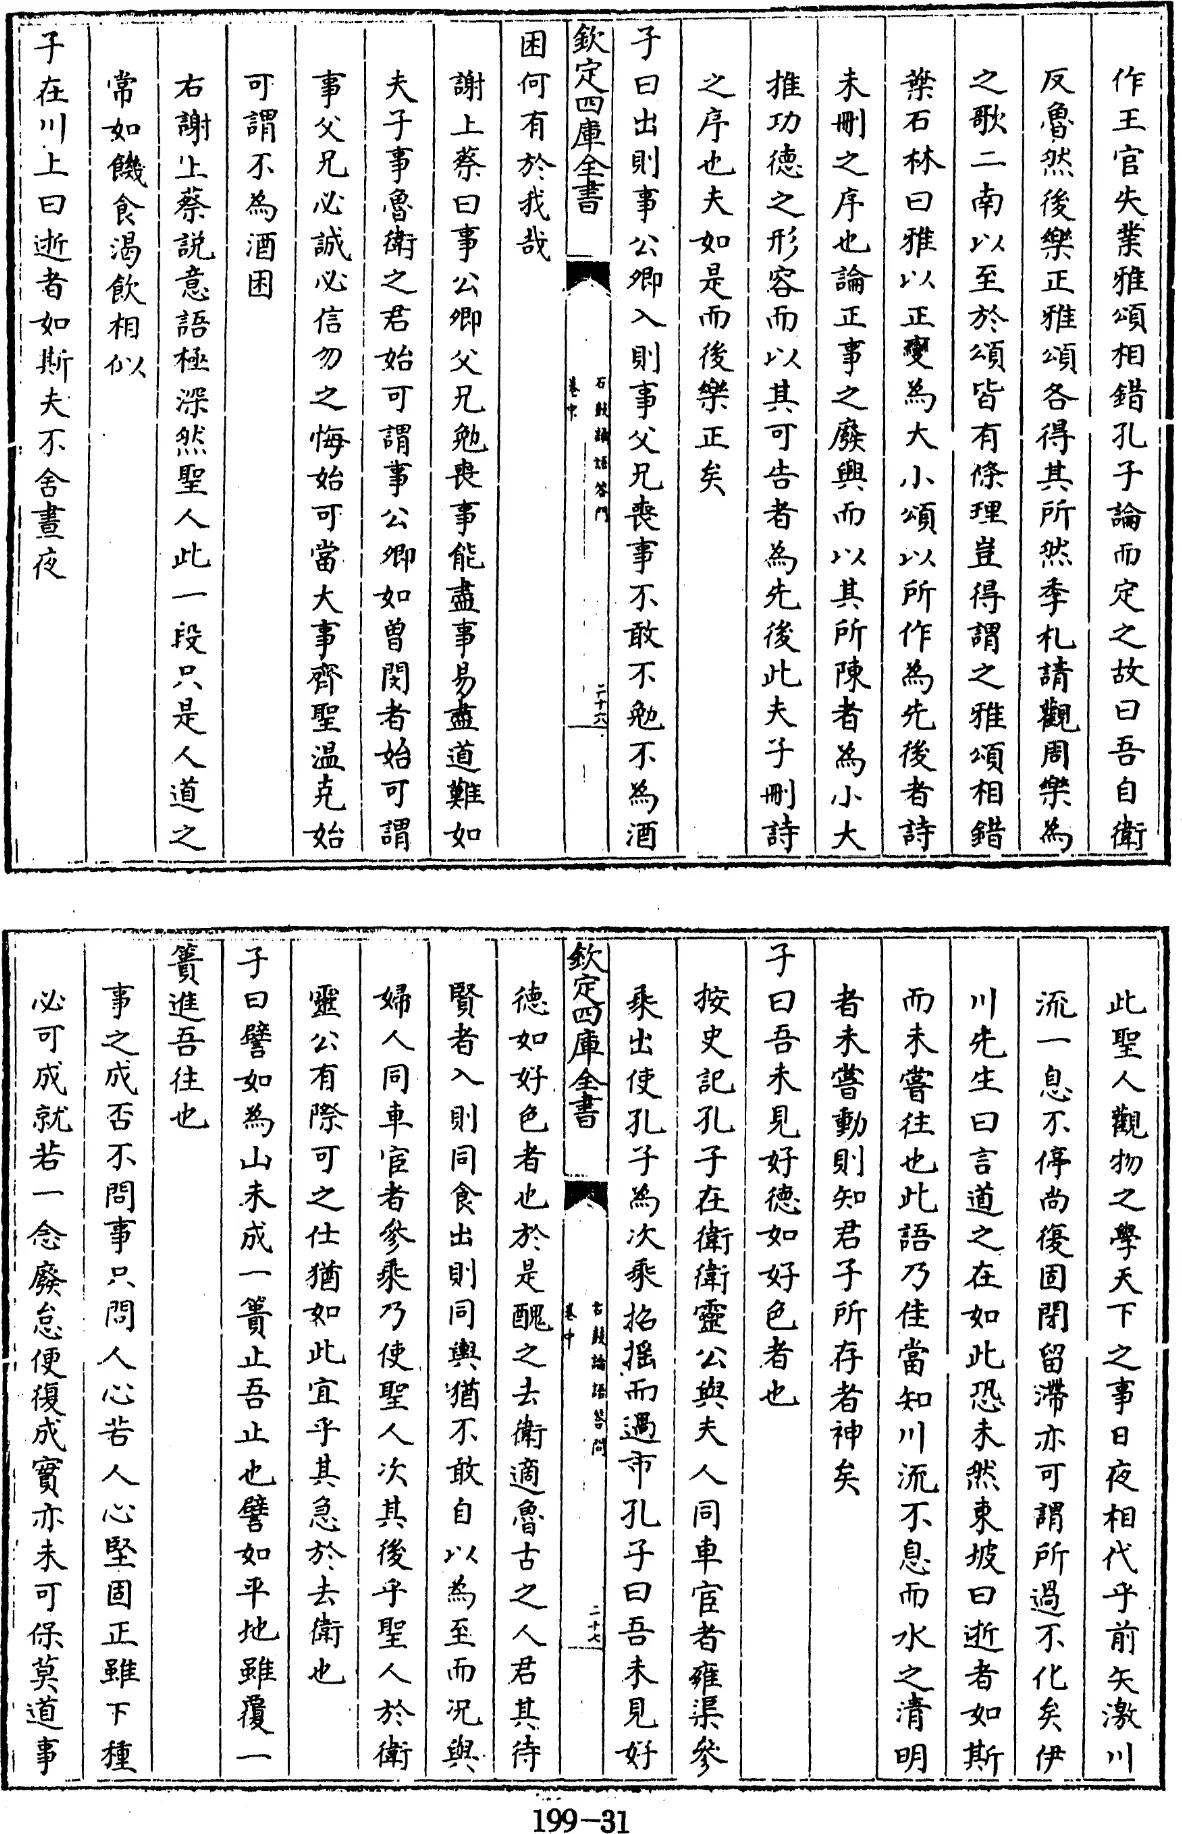 作王官失業雅頌相錯孔子論而定之故曰吾自衛
反魯然後樂正雅頌各得其所然季札請觀周樂為
之歌二南以至於頌皆有條理豈得謂之雅頌相錯
葉石林曰雅以正變為大小頌以所作為先後者詩
未刪之序也論正事之廢興而以其所陳者為小大
推功德之形容而以其可告者為先後此夫子刪詩
之序也夫如是而後樂正矣
子曰出則事公卿入則事父兄喪事不敢不勉不為酒
欽定四庫全書
石鼓論語答問
卷中
二十六
困何有於我哉
謝上蔡曰事公卿父兄勉喪事能盡事易盡道難如
夫子事魯衛之君始可謂事公卿如曾閔者始可謂
事父兄必誠必信勿之悔始可當大事齊聖温克始
可謂不為酒困
右謝上蔡説意語極深然聖人此一段只是人道之
常如饑食渴飲相似
子在川上曰逝者如斯夫不舍晝夜
此聖人觀物之學天下之事日夜相代乎前矢激川
流一息不停尚復固閉留滯亦可謂所過不化矣伊
川先生曰言道之在如此恐未然東坡曰逝者如斯
而未嘗往也此語乃佳當知川流不息而水之清明
者未嘗動則知君子所存者神矣
子曰吾未見好德如好色者也
按史記孔子在衛衛靈公與夫人同車宦者雍渠參
乘出使孔子為次乘招搖而過市孔子曰吾未見好
欽定四庫全書
石鼓論語答問
卷中
二十七
德如好色者也於是醜之去衛適魯古之人君其待
賢者入則同食出則同輿猶不敢自以為至而況與
婦人同車宦者參乘乃使聖人次其後乎聖人於衛
靈公有際可之仕猶如此宜乎其急於去衛也
子曰譬如為山未成一簣止吾止也譬如平地雖覆一
簣進吾往也
事之成否不問事只問人心若人心堅固正雖下種
必可成就若一念廢怠便復成實亦未可保莫道事
199-31